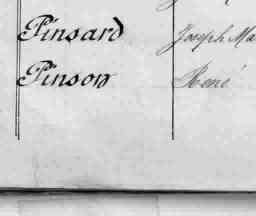 Pinsard Joseph Ma
Pinson René